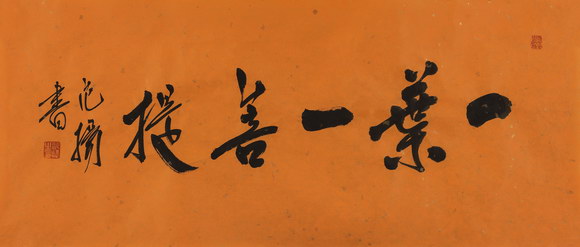 一葉一菩提
范揚
書